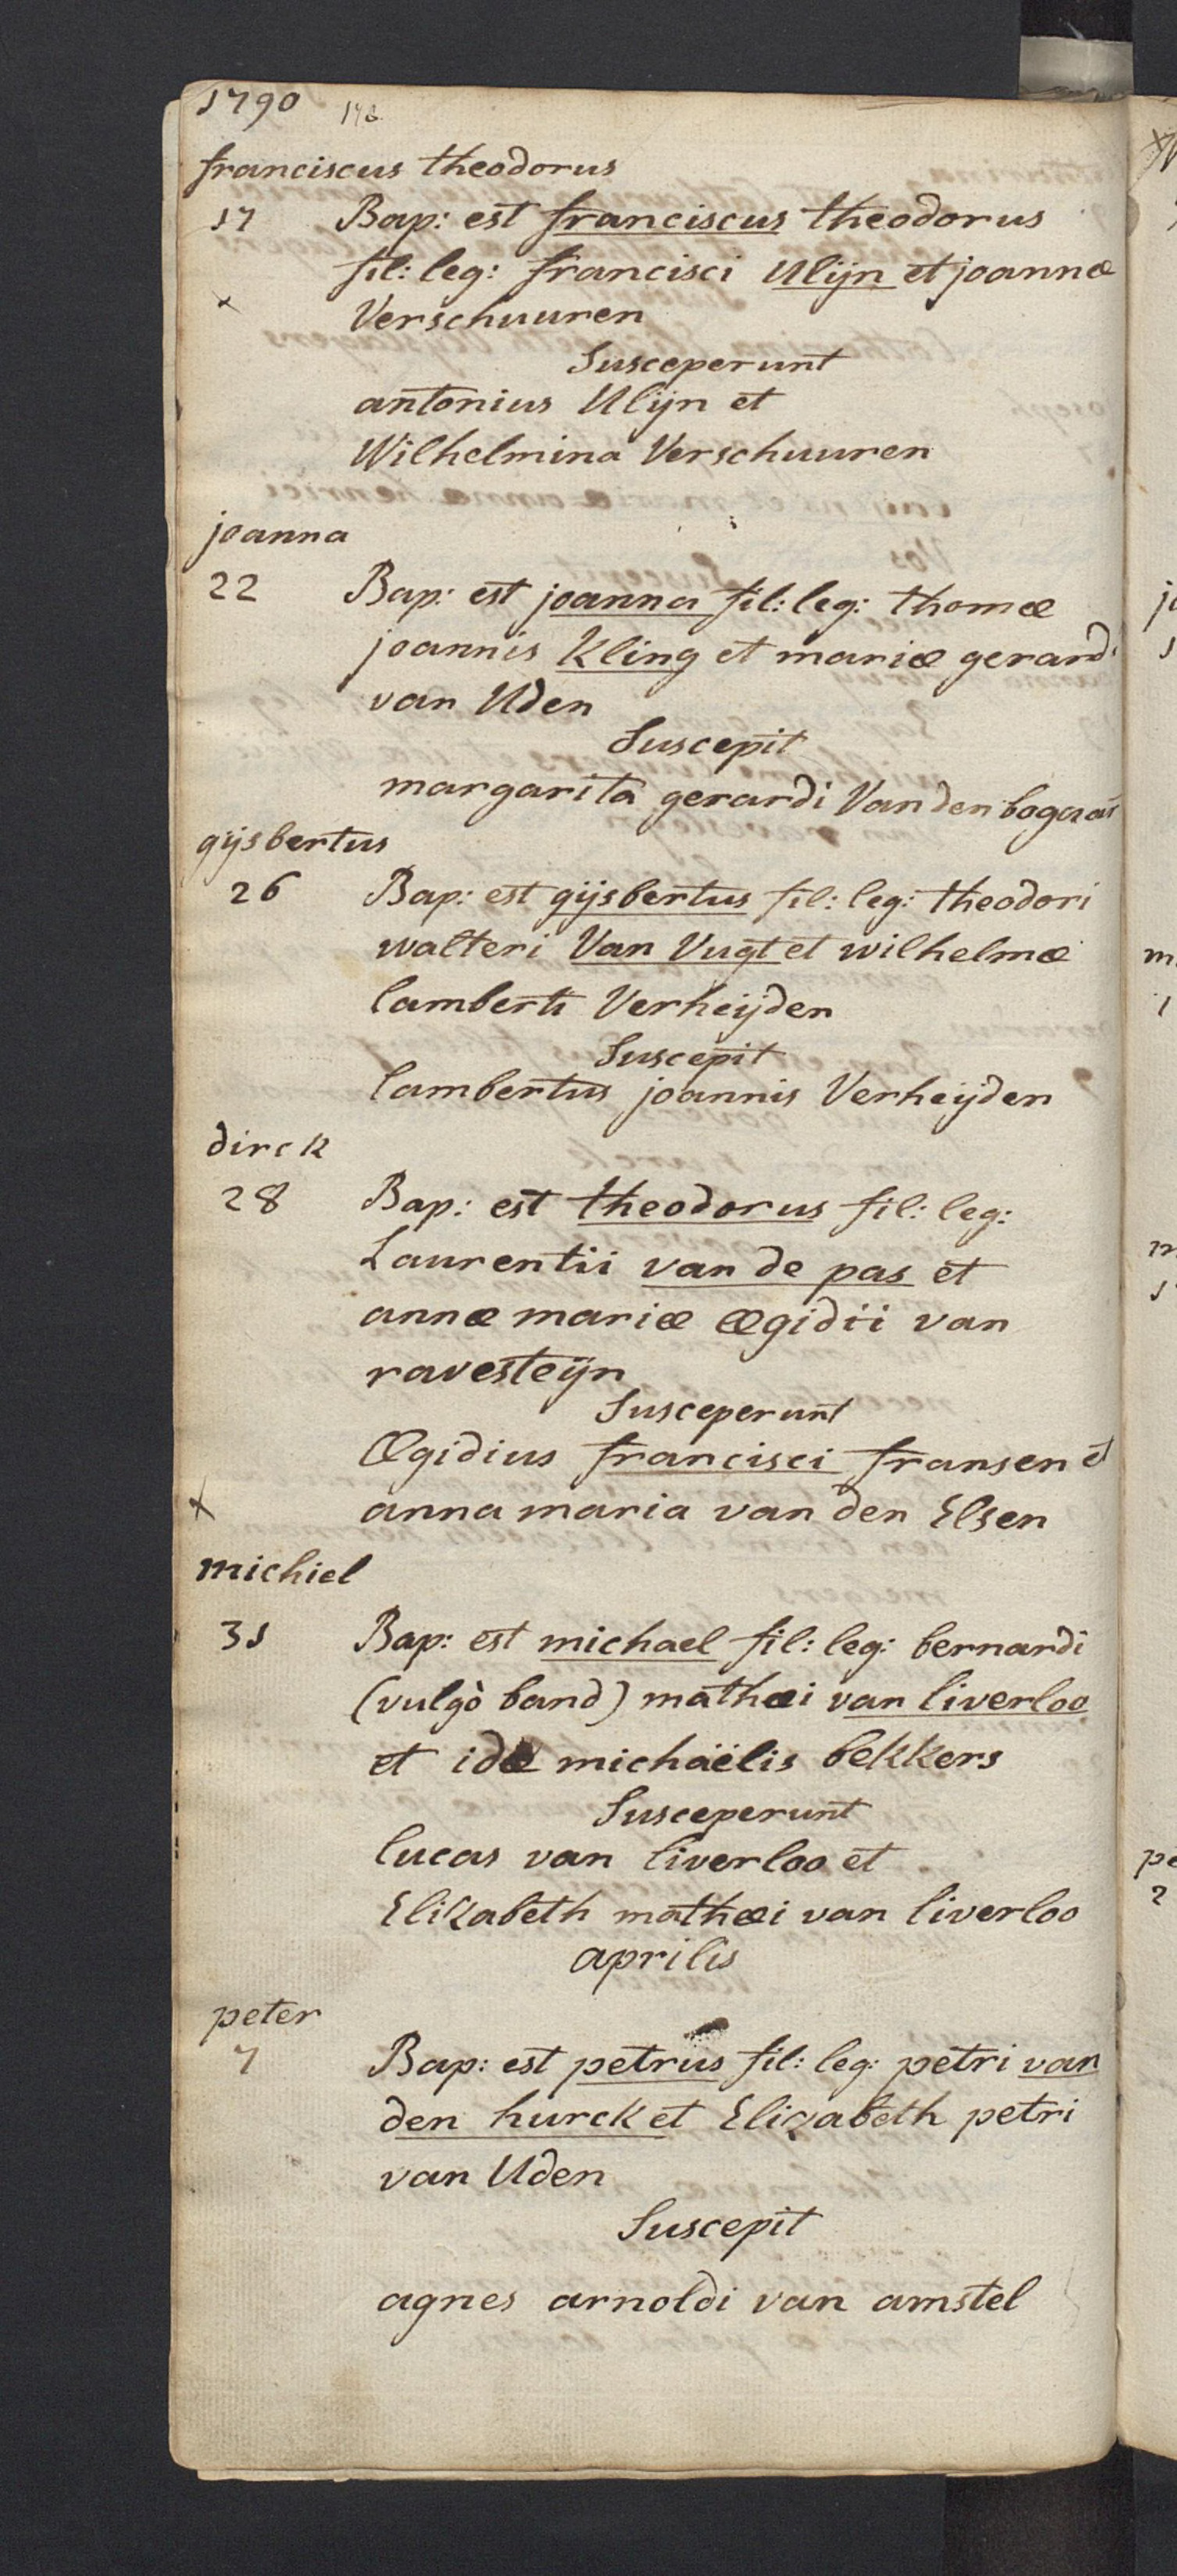 1790 148
franciscus theodorus
17 Bap: est franciscus theodorus
fil: leg: francisci Ulijn et joannæ
x Verschuuren
Susceperunt
antonius Ulijn et
Wilhelmina Verschuuren
joanna
22 Bap: est joanna fil: leg: thomæ
joannis Kling et mariæ gerardi
van Uden
Suscepit
margarita gerardi Van den bogaart
gijsbertus
26 Bap: est gijsbertus fil: leg: theodori
walteri Van Vugt et wilhelmæ
lamberti Verheijden
Suscepit
lambertus joannis Verheijden
dirck
28 Bap: est theodorus fil: leg:
Laurentii van de pas et
annæ mariæ Ægidii van
ravesteijn
Susceperunt
Ægidius francisci fransen et
x anna maria van den Elsen
michiel
31 Bap: est michael fil: leg: bernardi
(vulgò band) mathæi van liverloo
et idæ michaëlis bekkers
Susceperunt
lucas van liverloo et
Elizabeth mathæi van liverloo
aprilis
peter
7 Bap: est petrus fil: leg: petri van
den hurck et Elizabeth petri
van Uden
Suscepit
agnes arnoldi van amstel